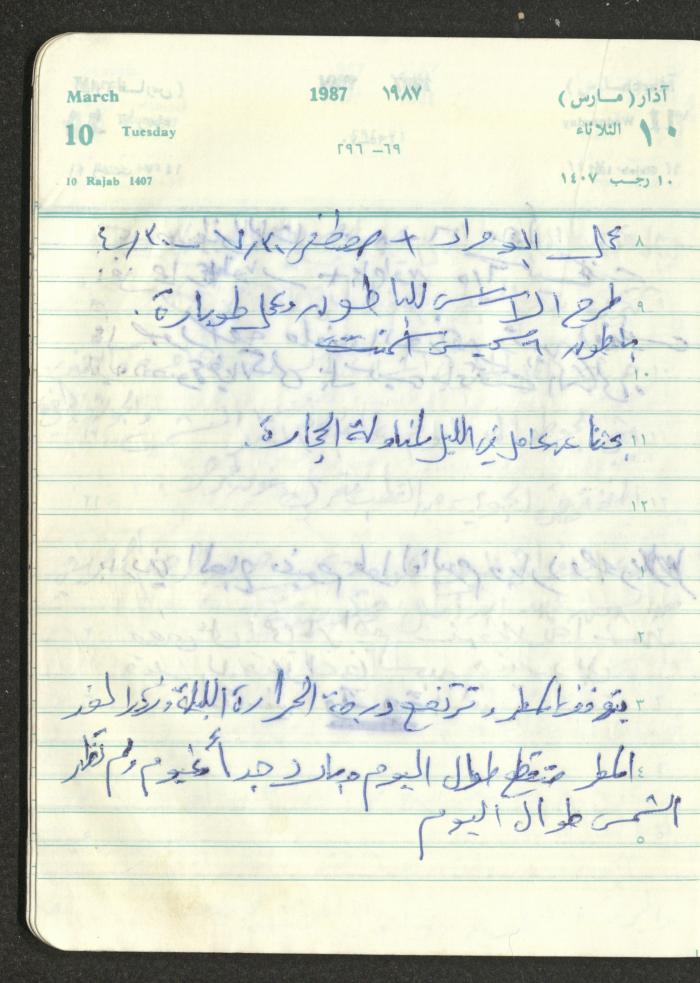 March 1987 ١٩٨٧ آذار (مارس)
10 Tuesday ١٠ الثلاثاء
٦٩ – ٢٩٦
10 Rajab 1407 ١٠ رجب ١٤٠٧
٨ عمل ابو مراد + مصطفى
٩ طرح الاساس للباطون وعمل طوبارة.
باطون
١٠
١١ بحثنا عن عامل في الليل لمناولة الحجارة.
١٢
١
٢
٣ يتوقف المطر وترتفع درجة الحرارة الليلة
٤ المطر متقطع طوال اليوم وبارد جداً وغيوم ولم تظهر
الشمس طوال اليوم
٥